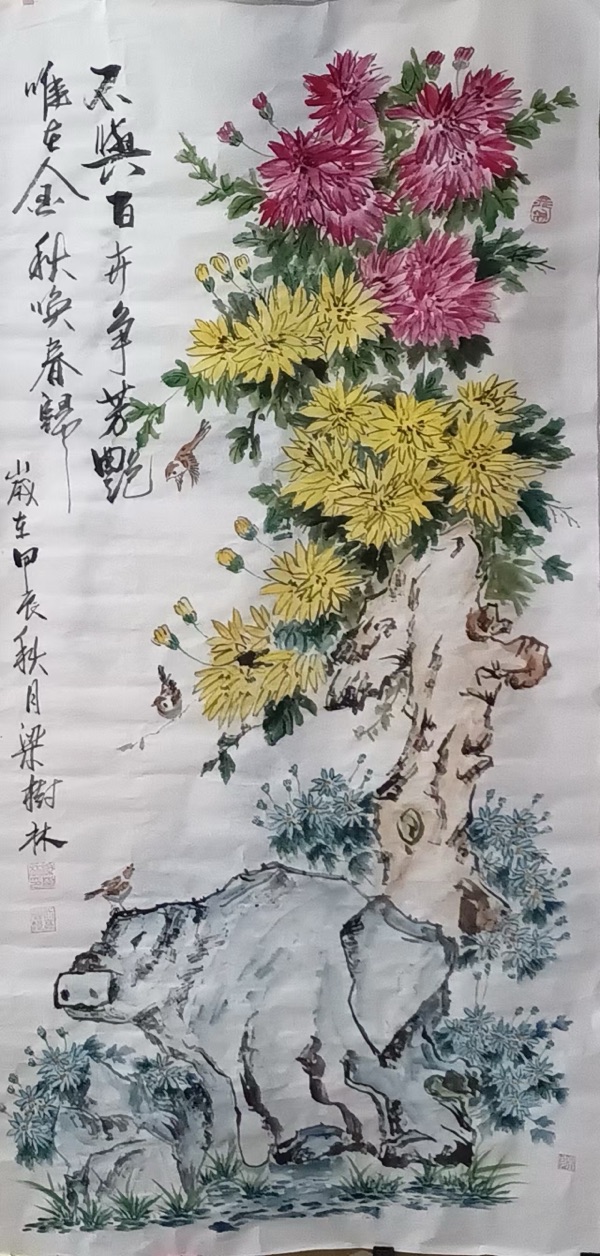 不與百卉争芳艷
唯在金秋唤春歸
歲在甲辰秋月梁樹林